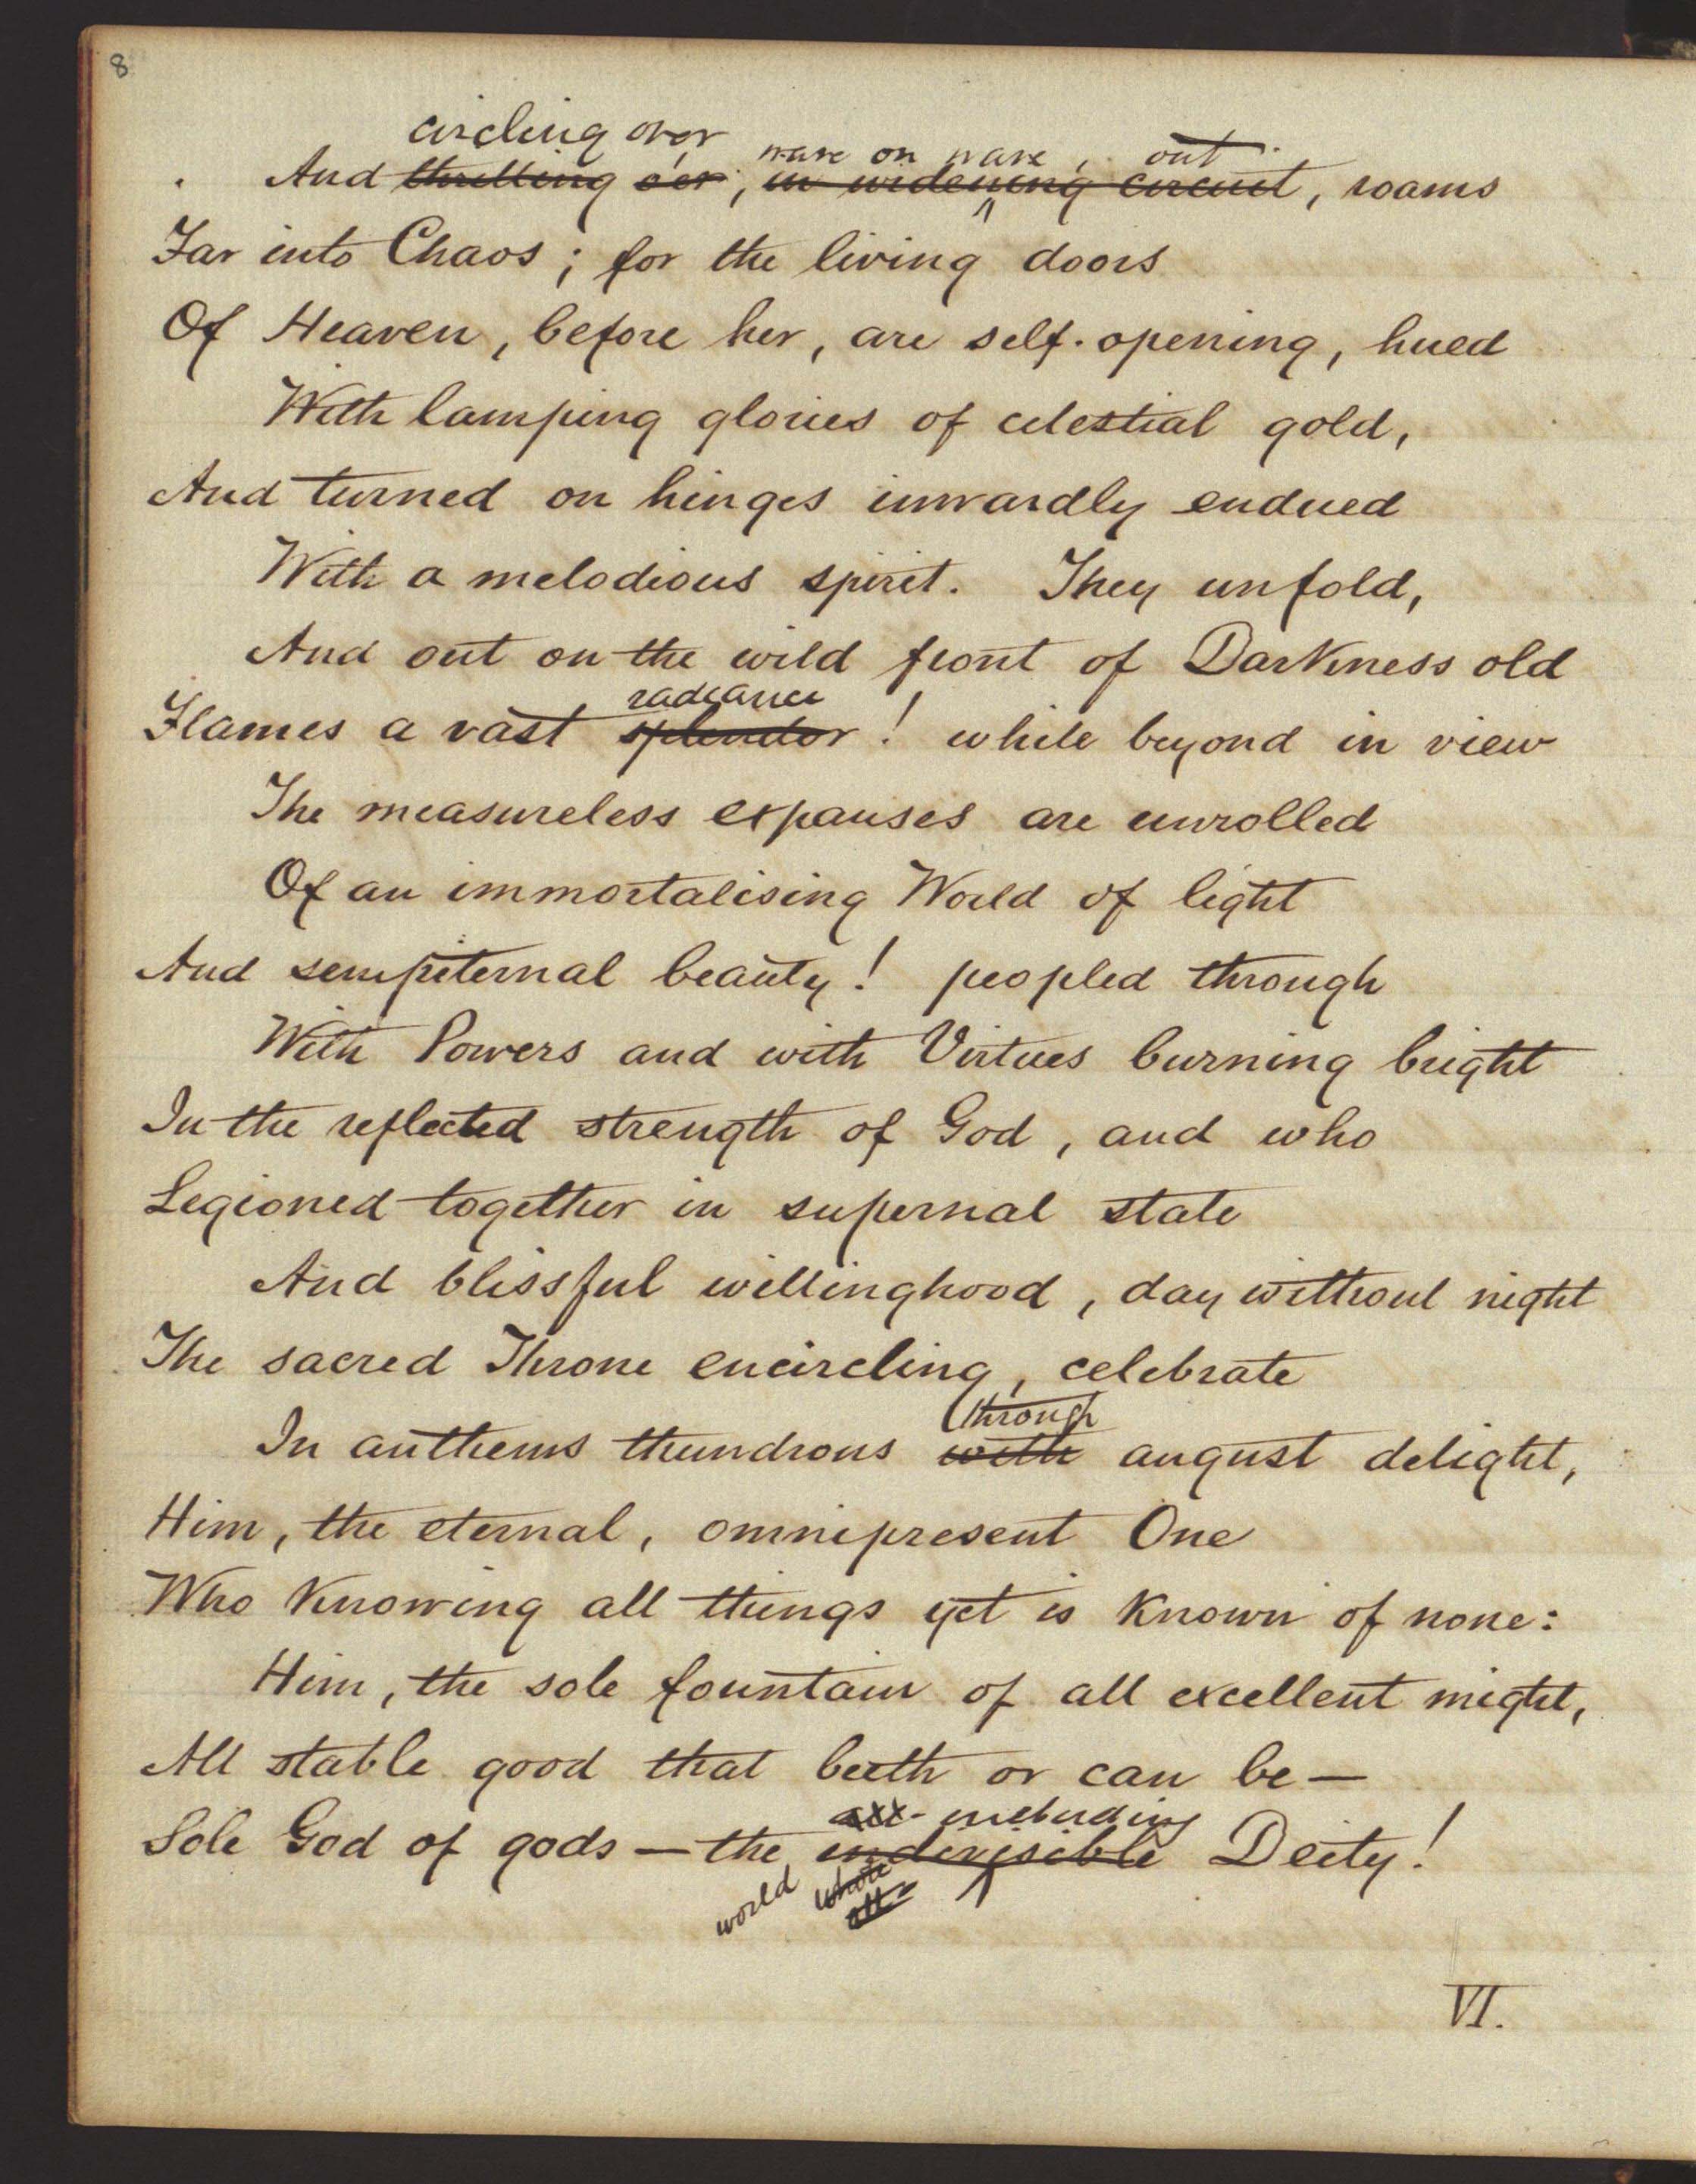 8
circling over wave on wave, out
And thrilling o'er, in widening circuit, roams
Far into Chaos; for the living doors
Of Heaven, before her, are self-opening, hued
With lamping glories of celestial gold,
And turned on hinges inwardly endued
With a melodious spirit. They unfold,
And out on the wild front of Darkness old
radiance
Flames a vast splendor! while beyond in view
The measureless expanses are unrolled
Of an immortalising World of light
And sempiternal beauty! peopled through
With Powers and with Virtues burning bright
In the reflected strength of God, and who
Legioned together in supernal state
And blissful willinghood, day without night
The sacred Throne encircling, celebrate
through
In anthems thundrous with august delight,
Him, the eternal, omnipresent One
Who knowing all things yet is known of none:
Him, the sole fountain of all excellent might,
All stable good that beeth or can be—
all-including
Sole God of gods—the indivisible Deity!
world whole
all-
VI.